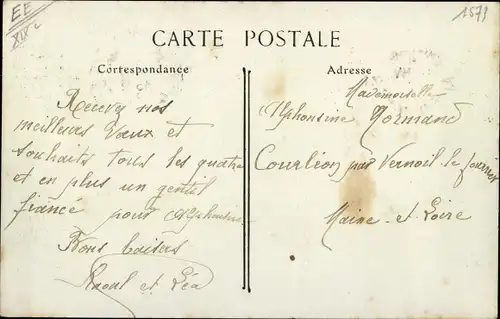 EE
XIXe
1573
CARTE POSTALE
Correspondance
Recevez nos
meilleurs Vœux et
souhaits tous les quatre
et en plus un gentil
fiancé pour Alphonsine
Bons baisers
Raoul et Léa
Adresse
Mademoiselle
Alphonsine Normand
Courléon par Vernoil le fourrier
Maine et Loire